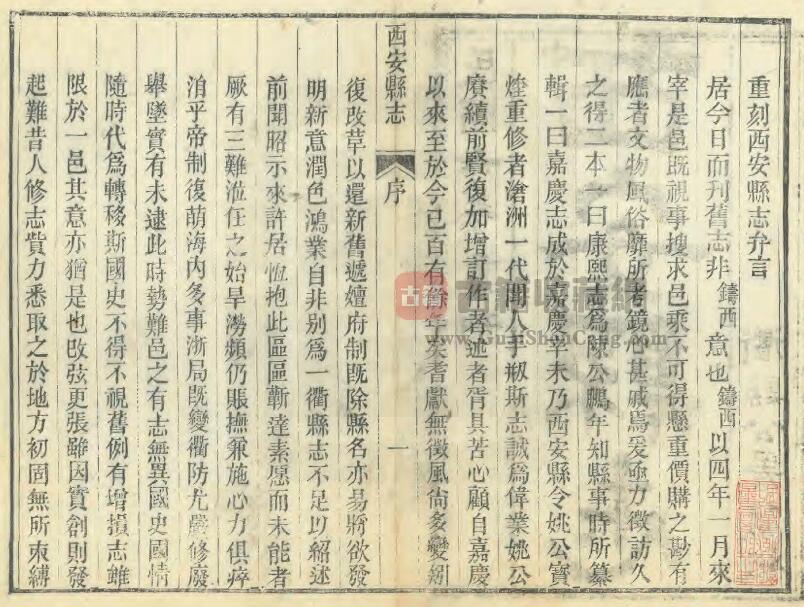 重刻西安縣志弁言
居今日而刊舊志非鑄西意也鑄西以四年一月來
宰是邑既視事搜求邑乘不可得懸重價購之尠有
應者文物風俗靡所考鏡心甚戚焉爰亟力徵訪久
之得二本一曰康熙志爲陳公鵬年知縣事時所纂
輯一曰嘉慶志成於嘉慶辛未乃西安縣令姚公寶
煃重修者滄洲一代聞人手剏斯志誠爲偉業姚公
賡續前賢復加增訂作者述者胥具苦心顧自嘉慶
以來至於今已百有餘年矣耆獻無徵風尙多變剙
西安縣志
序
一
復改革以還新舊遞嬗府制既除縣名亦易將欲發
明新意潤色鴻業自非别爲一衢縣志不足以紹述
前聞昭示來許居恆抱此區區蘄達素愿而未能者
厥有三難涖任之始旱澇頻仍賑撫兼施心力俱瘁
洎乎帝制復萌海內多事浙局既變衢防尤嚴修廢
舉墜實有未逮此時勢難邑之有志無異國史國情
隨時代爲轉移斯國史不得不視舊例有增損志雖
限於一邑其意亦猶是也改弦更張雖因實創則發
起難昔人修志貲力悉取之於地方初固無所束縛
古籍收藏網
www.GuJiShouCang.com
古籍